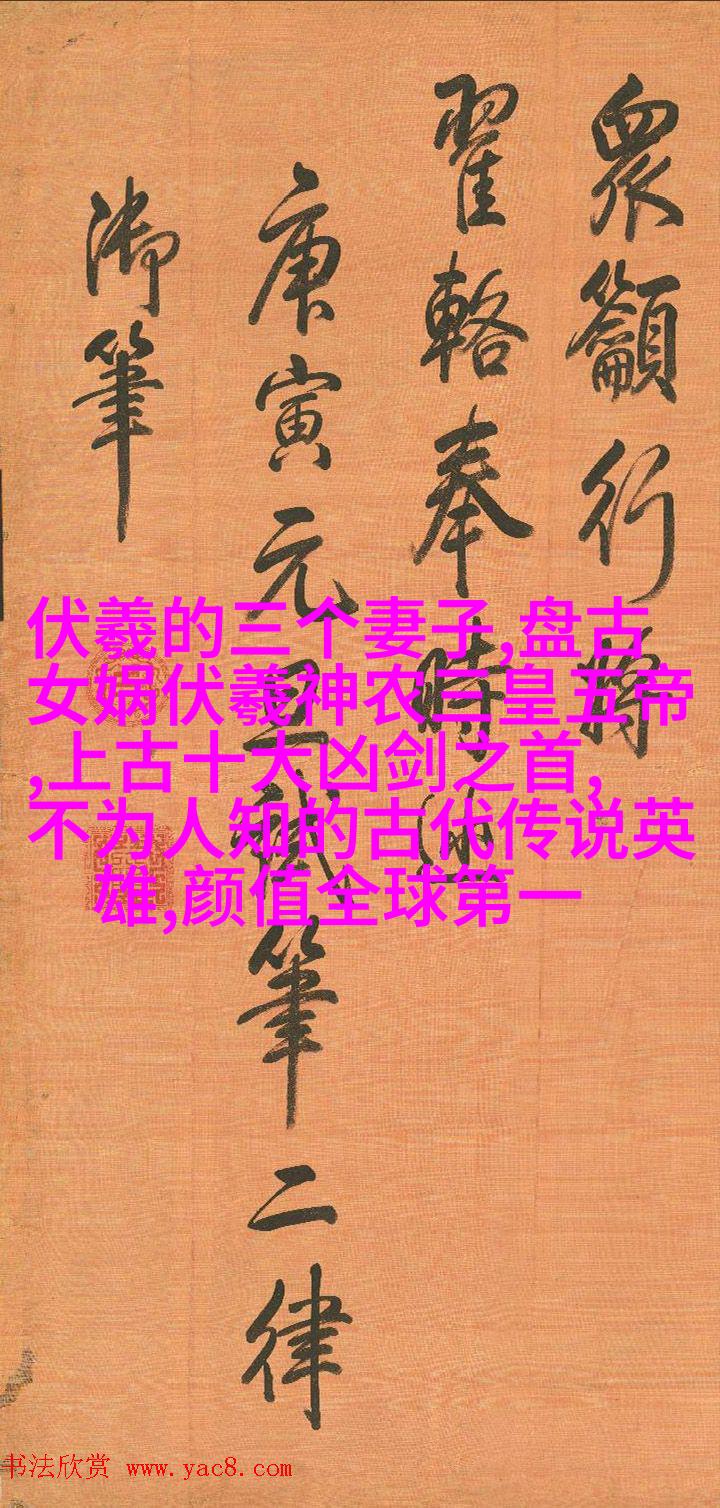 众籁行将
翟辂奉时巡
庚寅元旦试笔二律
御笔
伏羲的三个妻子,盘古
女娲伏羲神农三皇五帝
,上古十大凶剑之首,
不为人知的古代传说英
雄,颜值全球第一
书法欣赏 www.yac8.com